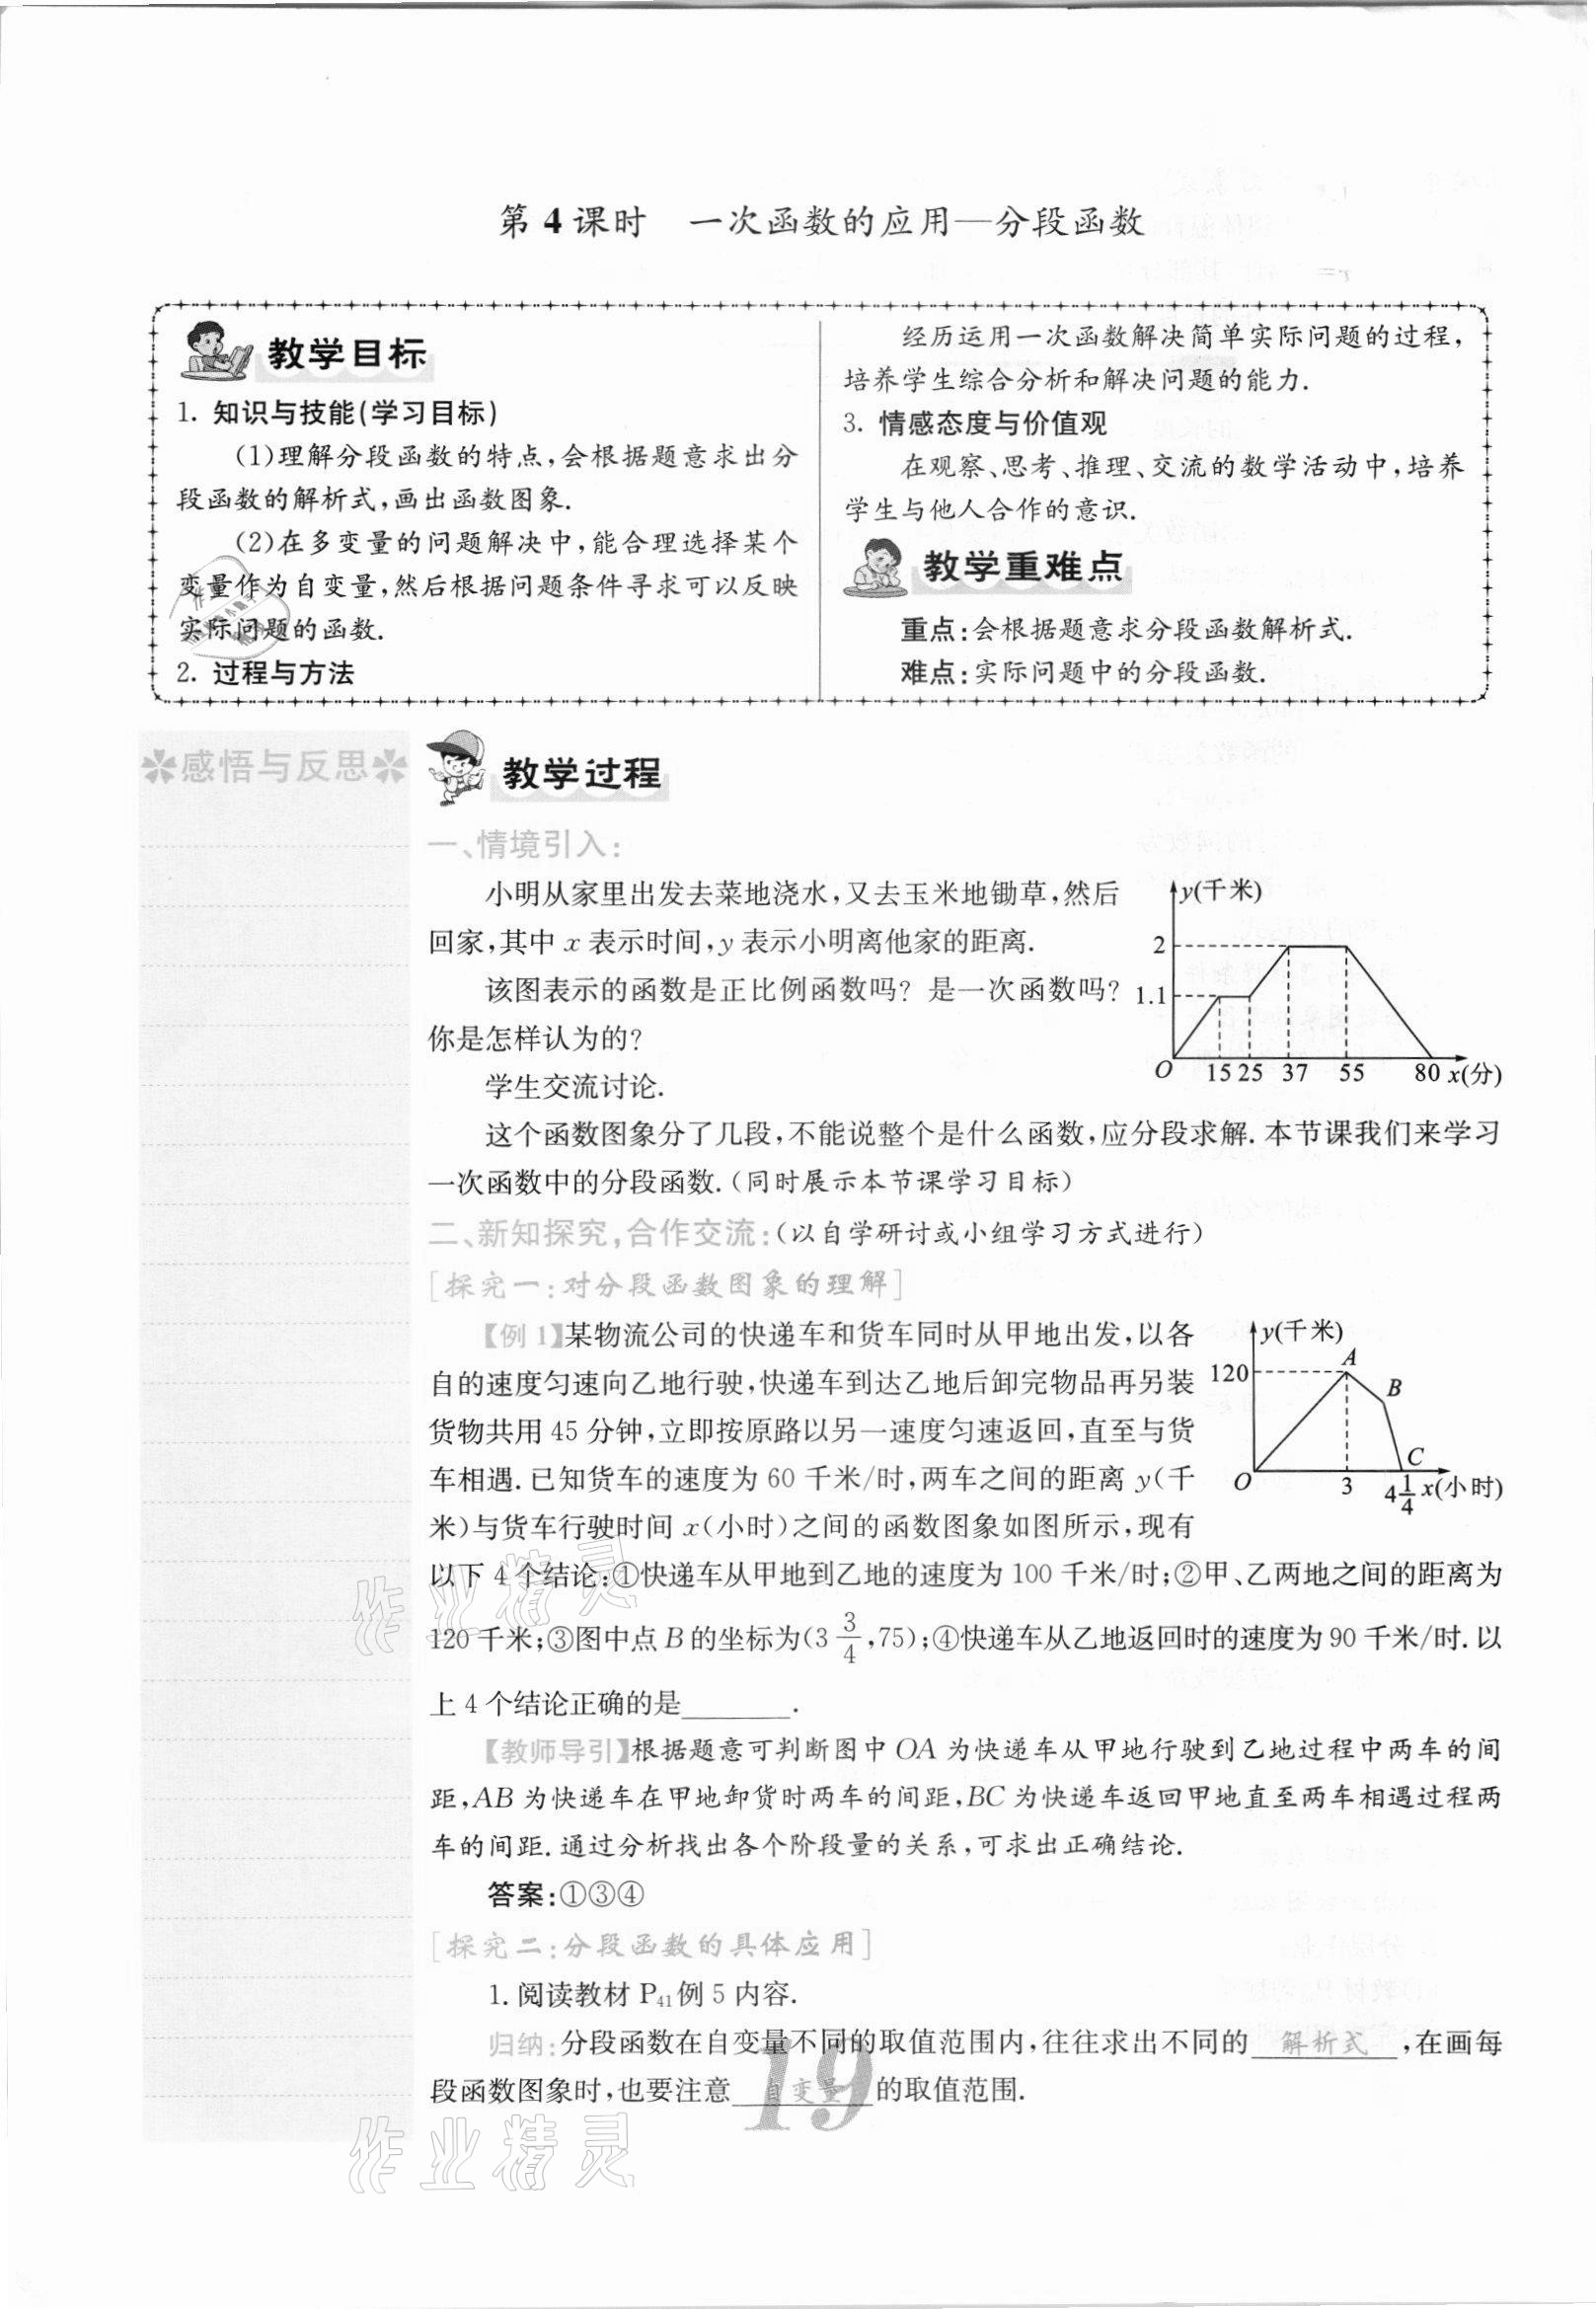 第4课时 一次函数的应用—分段函数
教学目标
1. 知识与技能(学习目标)
(1)理解分段函数的特点,会根据题意求出分
段函数的解析式,画出函数图象.
(2)在多变量的问题解决中,能合理选择某个
变量作为自变量,然后根据问题条件寻求可以反映
实际问题的函数.
2. 过程与方法
经历运用一次函数解决简单实际问题的过程,
培养学生综合分析和解决问题的能力.
3. 情感态度与价值观
在观察、思考、推理、交流的数学活动中,培养
学生与他人合作的意识.
教学重难点
重点:会根据题意求分段函数解析式.
难点:实际问题中的分段函数.
感悟与反思
教学过程
一、情境引入:
小明从家里出发去菜地浇水,又去玉米地锄草,然后
回家,其中 x 表示时间,y 表示小明离他家的距离.
该图表示的函数是正比例函数吗? 是一次函数吗?
你是怎样认为的?
学生交流讨论.
y(千米)
2
1.1
O 15 25 37 55 80 x(分)
这个函数图象分了几段,不能说整个是什么函数,应分段求解.本节课我们来学习
一次函数中的分段函数.(同时展示本节课学习目标)
二、新知探究,合作交流:(以自学研讨或小组学习方式进行)
[探究一:对分段函数图象的理解]
【例1】某物流公司的快递车和货车同时从甲地出发,以各
自的速度匀速向乙地行驶,快递车到达乙地后卸完物品再另装
货物共用 45 分钟,立即按原路以另一速度匀速返回,直至与货
车相遇.已知货车的速度为 60 千米/时,两车之间的距离 y(千
米)与货车行驶时间 x(小时)之间的函数图象如图所示,现有
y(千米)
A
120
B
C
O 3 4 1/4 x(小时)
以下 4 个结论:①快递车从甲地到乙地的速度为 100 千米/时;②甲、乙两地之间的距离为
120 千米;③图中点 B 的坐标为(3 3/4,75);④快递车从乙地返回时的速度为 90 千米/时.以
上 4 个结论正确的是________.
【教师导引】根据题意可判断图中 OA 为快递车从甲地行驶到乙地过程中两车的间
距,AB 为快递车在甲地卸货时两车的间距,BC 为快递车返回甲地直至两车相遇过程两
车的间距.通过分析找出各个阶段量的关系,可求出正确结论.
答案:①③④
[探究二:分段函数的具体应用]
1. 阅读教材 P41 例 5 内容.
归纳:分段函数在自变量不同的取值范围内,往往求出不同的 解析式 ,在画每
段函数图象时,也要注意 自变量 的取值范围.
19
作业精灵
作业精灵